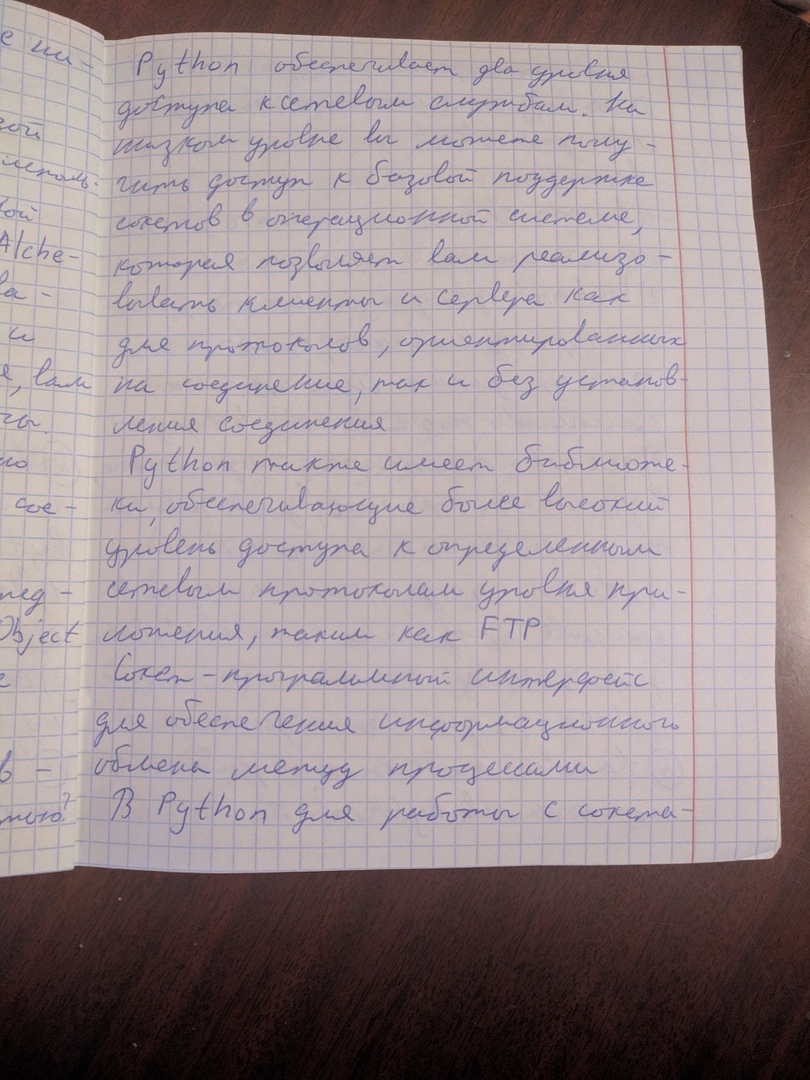 Python обеспечивает два уровня
доступа к сетевым службам. На
низком уровне вы можете полу-
чить доступ к базовой поддержке
сокетов в операционной системе,
которая позволяет вам реализо-
вывать клиенты и сервера как
для протоколов, ориентированных
на соединение, так и без установ-
ления соединения
Python также имеет библиоте-
ки, обеспечивающие более высокий
уровень доступа к определенным
сетевым протоколам уровня при-
ложения, таким как FTP
Сокет - программный интерфейс
для обеспечения информационного
обмена между процессами
В Python для работы с сокета-
Alche-
и
вам
сое-
Object